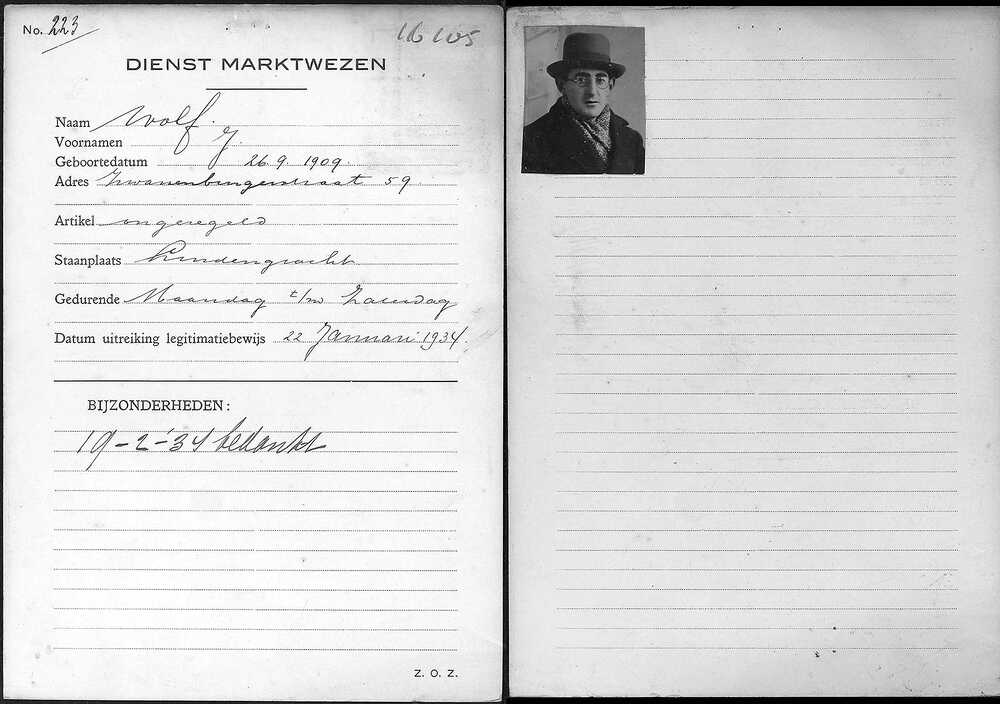 No. 223
16105
DIENST MARKTWEZEN
Naam Wolf.
Voornamen J.
Geboortedatum 26.9. 1909.
Adres Zwanenburgerstraat 59
Artikel ongeregeld
Staanplaats Lindengracht
Gedurende Maandag t/m Zaterdag
Datum uitreiking legitimatiebewijs 22 Januari 1934.
BIJZONDERHEDEN:
19-2-'34 bedankt
Z. O. Z.